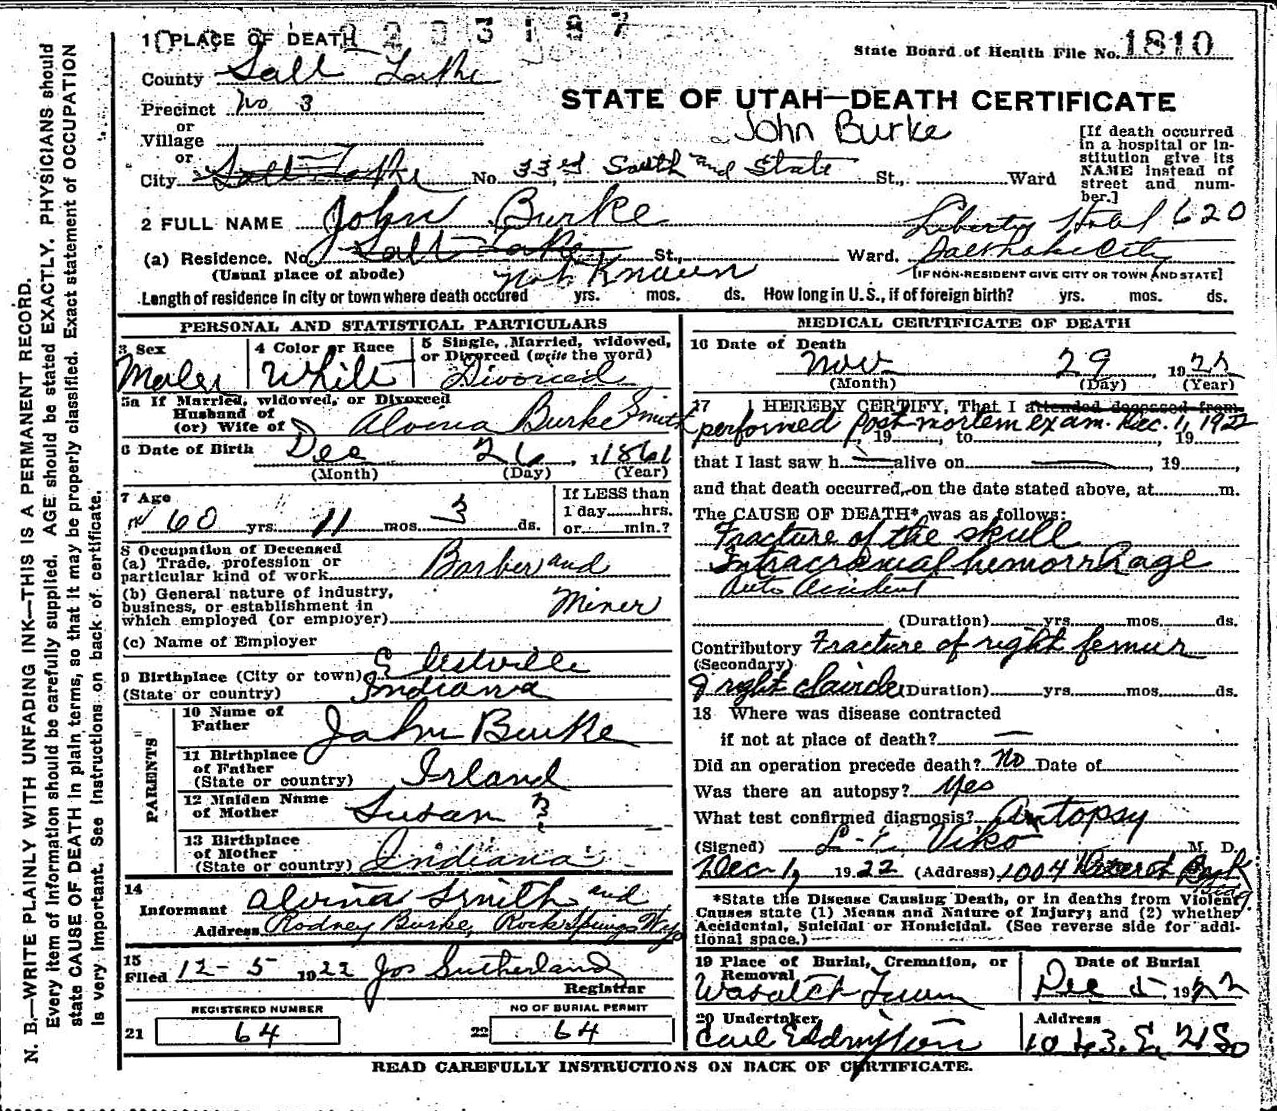 1 PLACE OF DEATH
State Board of Health File No. 1810
County Salt Lake
Precinct No 3
STATE OF UTAH—DEATH CERTIFICATE
or
Village
John Burke
or
City Salt Lake No. 33rd South and State St., Ward
[If death occurred in a hospital or institution give its NAME instead of street and number.]
2 FULL NAME John Burke
Liberty Hotel 620
(a) Residence. No. Salt Lake St., Ward. Salt Lake City
(Usual place of abode) not Known
[IF NON-RESIDENT GIVE CITY OR TOWN AND STATE]
Length of residence in city or town where death occured yrs. mos. ds. How long in U.S., if of foreign birth? yrs. mos. ds.
PERSONAL AND STATISTICAL PARTICULARS
3 Sex
Male
4 Color or Race
White
5 Single, Married, widowed,
or Divorced (write the word)
Divorced
5a If Married, widowed, or Divorced
Husband of
(or) Wife of Alvina Burke Smith
6 Date of Birth Dec 26, 1861
(Month) (Day) (Year)
7 Age
60 yrs. 11 mos. 3 ds.
If LESS than
1 day hrs.
or min.?
8 Occupation of Deceased
(a) Trade, profession or
particular kind of work Barber and
(b) General nature of industry,
business, or establishment in
which employed (or employer) Miner
(c) Name of Employer
9 Birthplace (City or town)
(State or country) Indiana
PARENTS
10 Name of
Father John Burke
11 Birthplace
of Father
(State or country) Irland
12 Maiden Name
of Mother Susan ?
13 Birthplace
of Mother
(State or country) Indiana
14
Informant Alvina Smith and
Address Rodney Burke, Rock Springs Wyo
15
Filed 12-5 1922 Jos Sutherland
Registrar
REGISTERED NUMBER
21 64
NO OF BURIAL PERMIT
22 64
MEDICAL CERTIFICATE OF DEATH
16 Date of Death
Nov 29 1922
(Month) (Day) (Year)
17 I HEREBY CERTIFY, That I attended deceased from
performed post mortem exam. Dec. 1, 1922
, 19 , to , 19
that I last saw h alive on , 19 ,
and that death occurred, on the date stated above, at m.
The CAUSE OF DEATH* was as follows:
Fracture of the skull
Intracranial hemorrhage
Auto Accident
(Duration) yrs. mos. ds.
Contributory Fracture of right femur
(Secondary)
& right (Duration) yrs. mos. ds.
18 Where was disease contracted
if not at place of death? —
Did an operation precede death? No Date of
Was there an autopsy? Yes
What test confirmed diagnosis? Autopsy
(Signed) L. E. Viko M. D.
Dec 1, 1922 (Address) 1004 Bldg
*State the Disease Causing Death, or in deaths from Violent
Causes state (1) Means and Nature of Injury; and (2) whether
Accidental, Suicidal or Homicidal. (See reverse side for addi-
tional space.)
19 Place of Burial, Cremation, or
Removal
Wasatch Lawn
Date of Burial
Dec 5 1922
20 Undertaker
Address
READ CAREFULLY INSTRUCTIONS ON BACK OF CERTIFICATE.
N. B.—WRITE PLAINLY WITH UNFADING INK—THIS IS A PERMANENT RECORD.
Every item of information should be carefully supplied. AGE should be stated EXACTLY. PHYSICIANS should
state CAUSE OF DEATH in plain terms, so that it may be properly classified. Exact statement of OCCUPATION
is very important. See instructions on back of certificate.